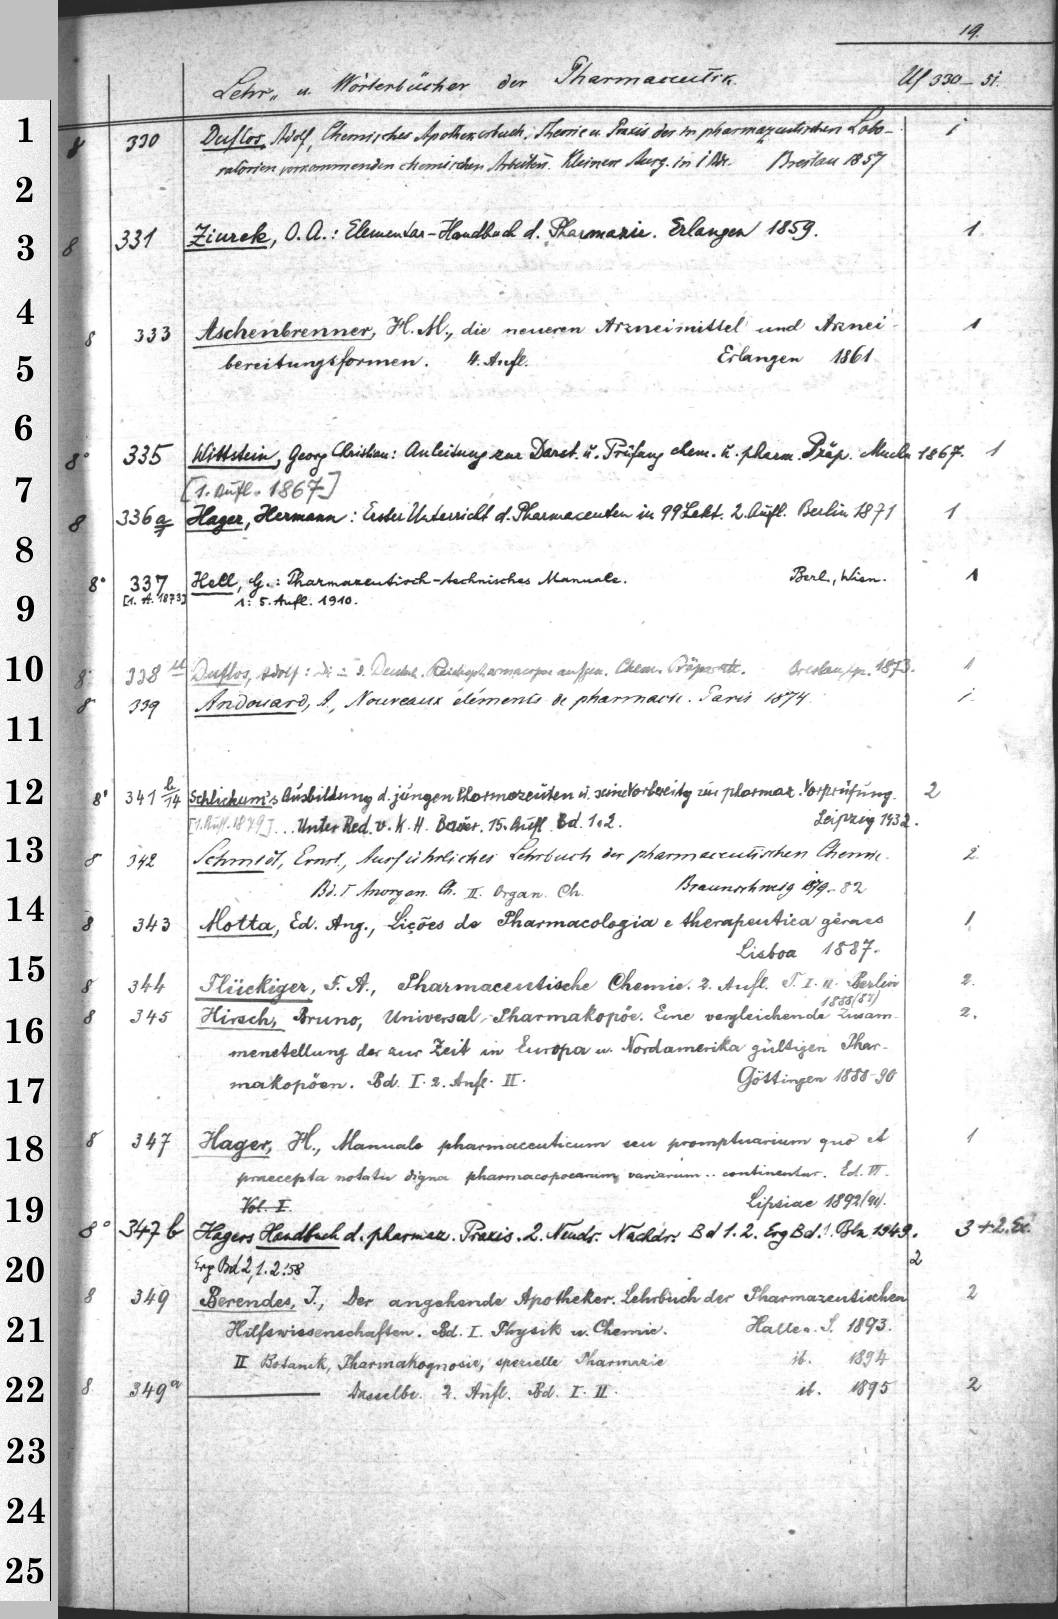 19.
Lehr- u. Wörterbücher der Pharmaceutik Uf 330-51.
1
8 330 Duflos, Adolf, Chemisches Apothekerbuch. Theorie u. Praxis der in pharmazeutischen Labo- 1
ratorien vorkommenden chemischen Arbeiten. Kleinere Ausg. in 1 Bde. Breslau 1857
2
3
8 331 Ziurek, O. A.: Elementar-Handbuch d. Pharmazie. Erlangen 1859. 1
4
8 333 Aschenbrenner, H. M., die neueren Arzneimittel und Arznei- 1
5
bereitungsformen. 4. Aufl. Erlangen 1861
6
8° 335 Wittstein, Georg Christian: Anleitung zur Darst. u. Prüfung chem. u. pharm. Präp. Muchn 1867. 1
7
[1. Aufl. 1867]
8 336a Hager, Hermann: Erster Unterricht d. Pharmaceuten in 99 Lekt. 2. Aufl. Berlin 1871 1
8
8° 337 Hell, G.: Pharmazeutisch-technisches Manuale. Berl., Wien. 1
[1. A. 1873] 1: 5. Aufl. 1910.
9
10
8 338 Duflos, Adolf: d. Deutsch. Reichspharmacopoe aufgen. Chem. Präparate. Breslau 1873. 1
8° 339 Andouard, A., Nouveaux éléments de pharmacie. Paris 1874 1
11
12
8° 341 b/14 Schlickum's Ausbildung d. jungen Pharmazeuten u. seine Vorbereitg zur pharmaz. Vorprüfung. 2
[1. Aufl. 1879] . . Unter Red. v. K. H. Bauer. 15. Aufl Bd. 1.2. Leipzig 1932.
13
8 342 Schmidt, Ernst, Ausführliches Lehrbuch der pharmaceutischen Chemie. 2
Bd. I Anorgan. Ch. II. Organ. Ch. Braunschweig 1879-82
14
8 343 Motta, Ed. Aug., Lições de Pharmacologia e therapeutica geraes 1
Lisboa 1887.
15
8 344 Flückiger, F. A., Pharmaceutische Chemie. 2. Aufl. T. I. II. Berlin 2.
1888(87)
16
8 345 Hirsch, Bruno, Universal-Pharmakopöe. Eine vergleichende Zusam- 2.
menstellung der zur Zeit in Europa u. Nordamerika gültigen Phar-
17
makopöen. Bd. I. 2. Aufl. II. Göttingen 1888-90
18
8 347 Hager, H., Manuale pharmaceuticum seu promptuarium quo et 1
praecepta notatu digna pharmacopoearum variarum .. continentur. Ed. VI.
19
Vol. I. Lipsiae 1892/91.
8° 347b Hagers Handbuch d. pharmaz. Praxis. 2. Neudr. Nachdr. Bd 1.2. Erg Bd. 1. Bln 1949. 3+2.Ex
20
Erg Bd 2, 1. 2: 58 2
8 349 Berendes, J., Der angehende Apotheker. Lehrbuch der Pharmazeutischen 2
21
Hilfswissenschaften. Bd. I. Physik u. Chemie. Halle a. S. 1893.
II Botanik, Pharmakognosie, spezielle Pharmazie ib. 1894
22
8 349a ——— Dasselbe. 2. Aufl. Bd. I. II. ib. 1895 2
23
24
25